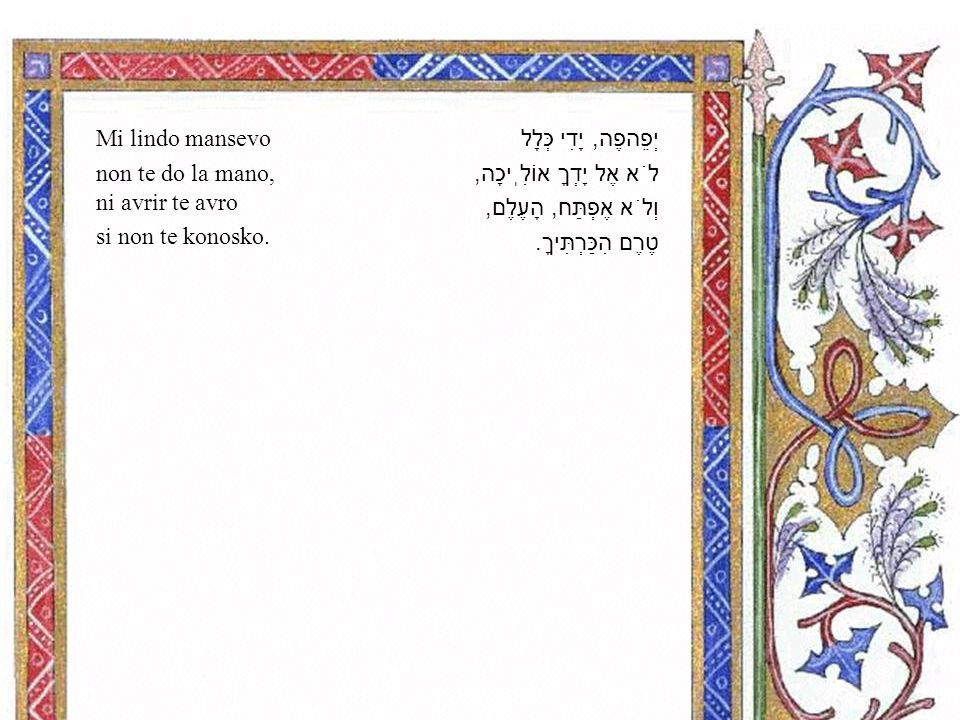 Mi lindo mansevo
non te do la mano,
ni avrir te avro
si non te konosko.
יְפֵהפֶה, יָדִי כְּלָל
לֹא אֶל יָדְךָ אוֹלִיכָה,
וְלֹא אֶפְתַּח, הָעֶלֶם,
טֶרֶם הִכַּרְתִּיךָ.